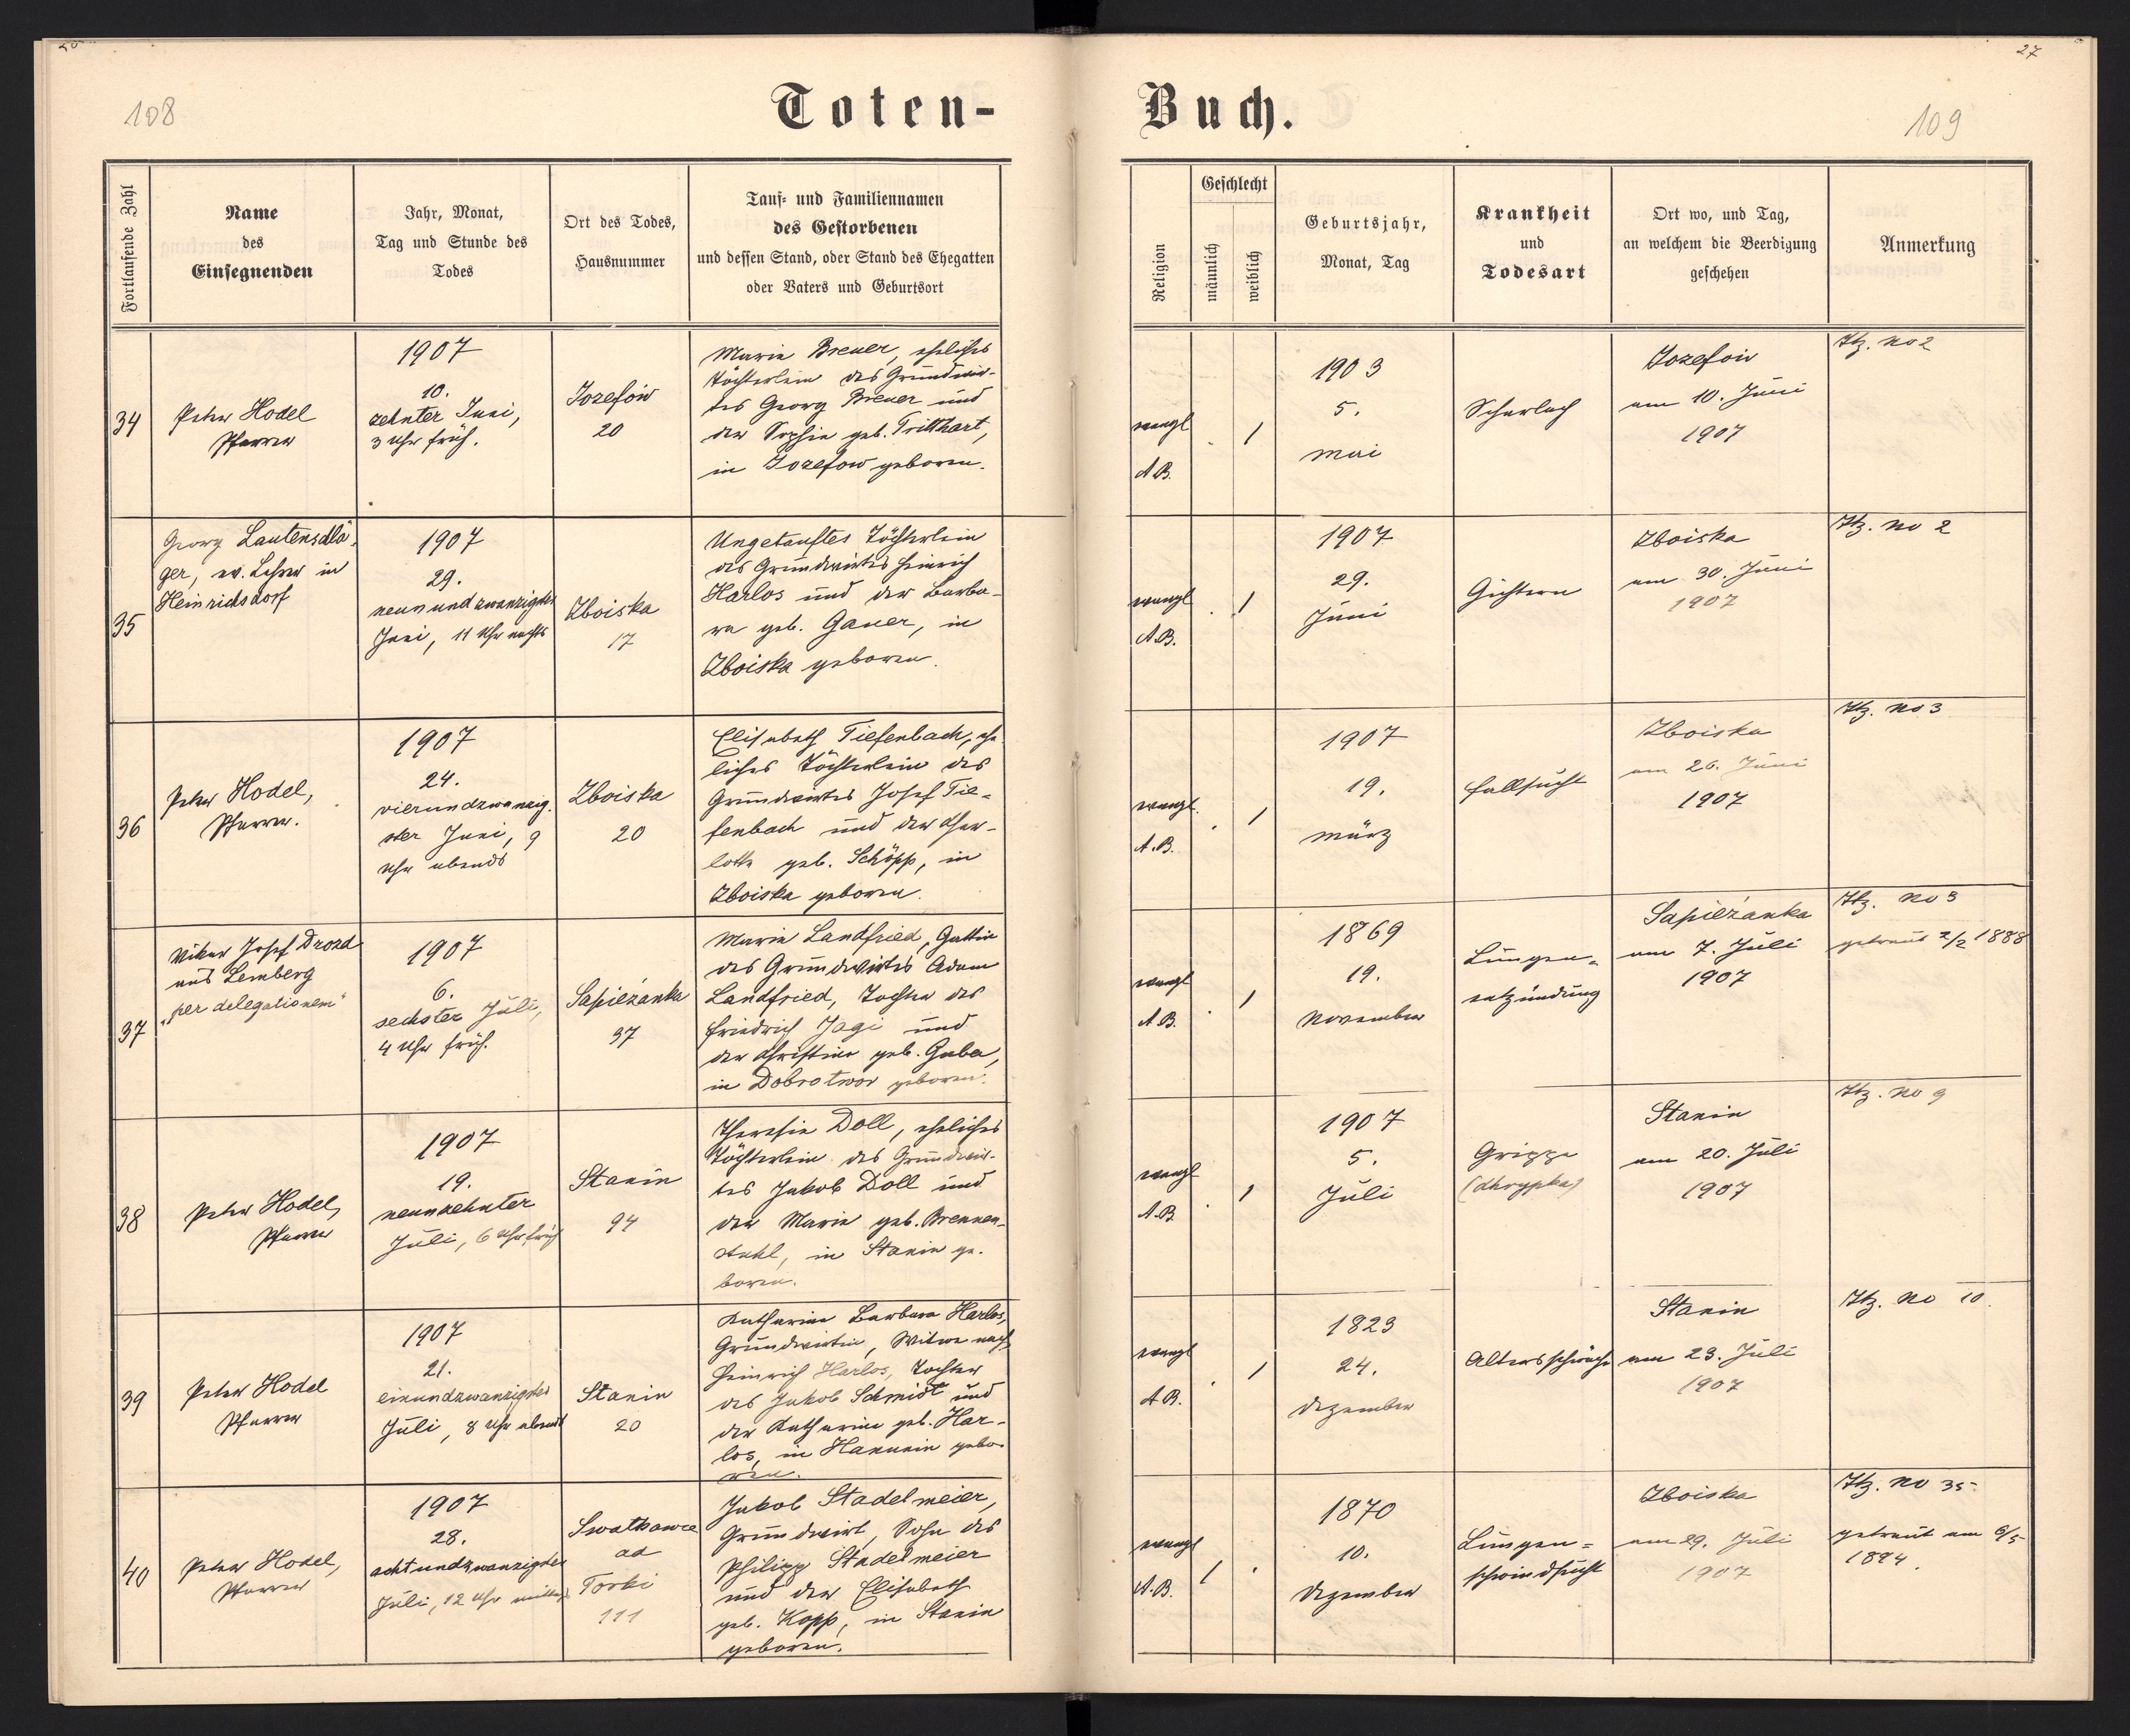 27
108
Toten-
Buch.
109
Fortlaufende Zahl
Name
des
Einsegnenden
Jahr, Monat,
Tag und Stunde des
Todes
Ort des Todes,
Hausnummer
Tauf- und Familiennamen
des Gestorbenen
und dessen Stand, oder Stand des Ehegatten
oder Vaters und Geburtsort
Religion
Geschlecht
männlich
weiblich
Geburtsjahr,
Monat, Tag
Krankheit
und
Todesart
Ort wo, und Tag,
an welchem die Beerdigung
geschehen
Anmerkung
34
Peter Hodel
Pfarrer
1907
10.
zehnter Juni,
3 Uhr früh.
Jozefów
20
Marie Breuer, eheliches
Töchterlein des Grundwir-
tes Georg Breuer und
der Sophie geb. Tritthart,
in Jozefow geboren.
evangl
A.B.
1
1903
5.
Mai
Scharlach
Jozefow
am 10. Juni
1907
Itz. No 2
35
Georg Lautenschlä-
ger, ev. Lehrer in
Heinrichsdorf
1907
29.
neunundzwanzigster
Juni, 11 Uhr nachts
Zboiska
17
Ungetauftes Töchterlein
des Grundwirtes Heinrich
Harlos und der Barba-
ra geb. Gauer, in
Zboiska geboren.
evangl
A.B.
1
1907
29.
Juni
Gichtern
Zboiska
am 30. Juni
1907
Itz. No 2
36
Peter Hodel,
Pfarrer.
1907
24.
vierundzwanzig-
ster Juni, 9
Uhr abends
Zboiska
20
Elisabeth Tiefenbach, ehe-
liches Töchterlein des
Grundwirtes Josef Tie-
fenbach und der Char-
lotte geb. Schöpp, in
Zboiska geboren.
evangl.
A.B.
1
1907
19.
März
Fallsucht
Zboiska
am 26. Juni
1907
Itz. No 3
37
Vikar Josef Drozd
aus Lemberg
"per delegationem"
1907
6.
sechster Juli,
4 Uhr früh.
Sapieżanka
37
Marie Landfried, Gattin
des Grundwirtes Adam
Landfried, Tochter des
Friedrich Jagi und
der Christine geb. Gaba,
in Dobrotwor geboren.
evangl
A.B.
1
1869
19.
November
Lungen-
entzündung
Sapieżanka
am 7. Juli
1907
Itz. No 3
getraut 2/2 1888
38
Peter Hodel,
Pfarrer
1907
19.
neunzehnter
Juli, 6 Uhr früh
Stanin
94
Theresia Doll, eheliches
Töchterlein des Grundwir-
tes Jakob Doll und
der Marie geb. Brennen-
stuhl, in Stanin ge-
boren.
evangl
A.B.
1
1907
5.
Juli
Grippe
(chrypka)
Stanin
am 20. Juli
1907
Itz. No 9
39
Peter Hodel
Pfarrer
1907
21.
einundzwanzigster
Juli, 8 Uhr abends
Stanin
20
Katharina Barbara Harlos,
Grundwirtin, Witwe nach
Heinrich Harlos, Tochter
des Jakob Schmidt und
der Katharine geb. Har-
los, in Hanunin gebo-
ren.
evangl
A.B.
1
1823
24.
Dezember
Altersschwäche
Stanin
am 23. Juli
1907
Itz. No 10.
40
Peter Hodel,
Pfarrer
1907
28.
achtundzwanzigster
Juli, 12 Uhr mittag
ad
Torki
111
Jakob Stadelmeier,
Grundwirt, Sohn des
Philipp Stadelmeier
und der Elisabeth
geb. Kopp, in Stanin
geboren.
evangl
A.B.
1
1870
10.
Dezember
Lungen-
schwindsucht
Zboiska
am 29. Juli
1907
Itz. No 35
getraut am 6/5
1894.